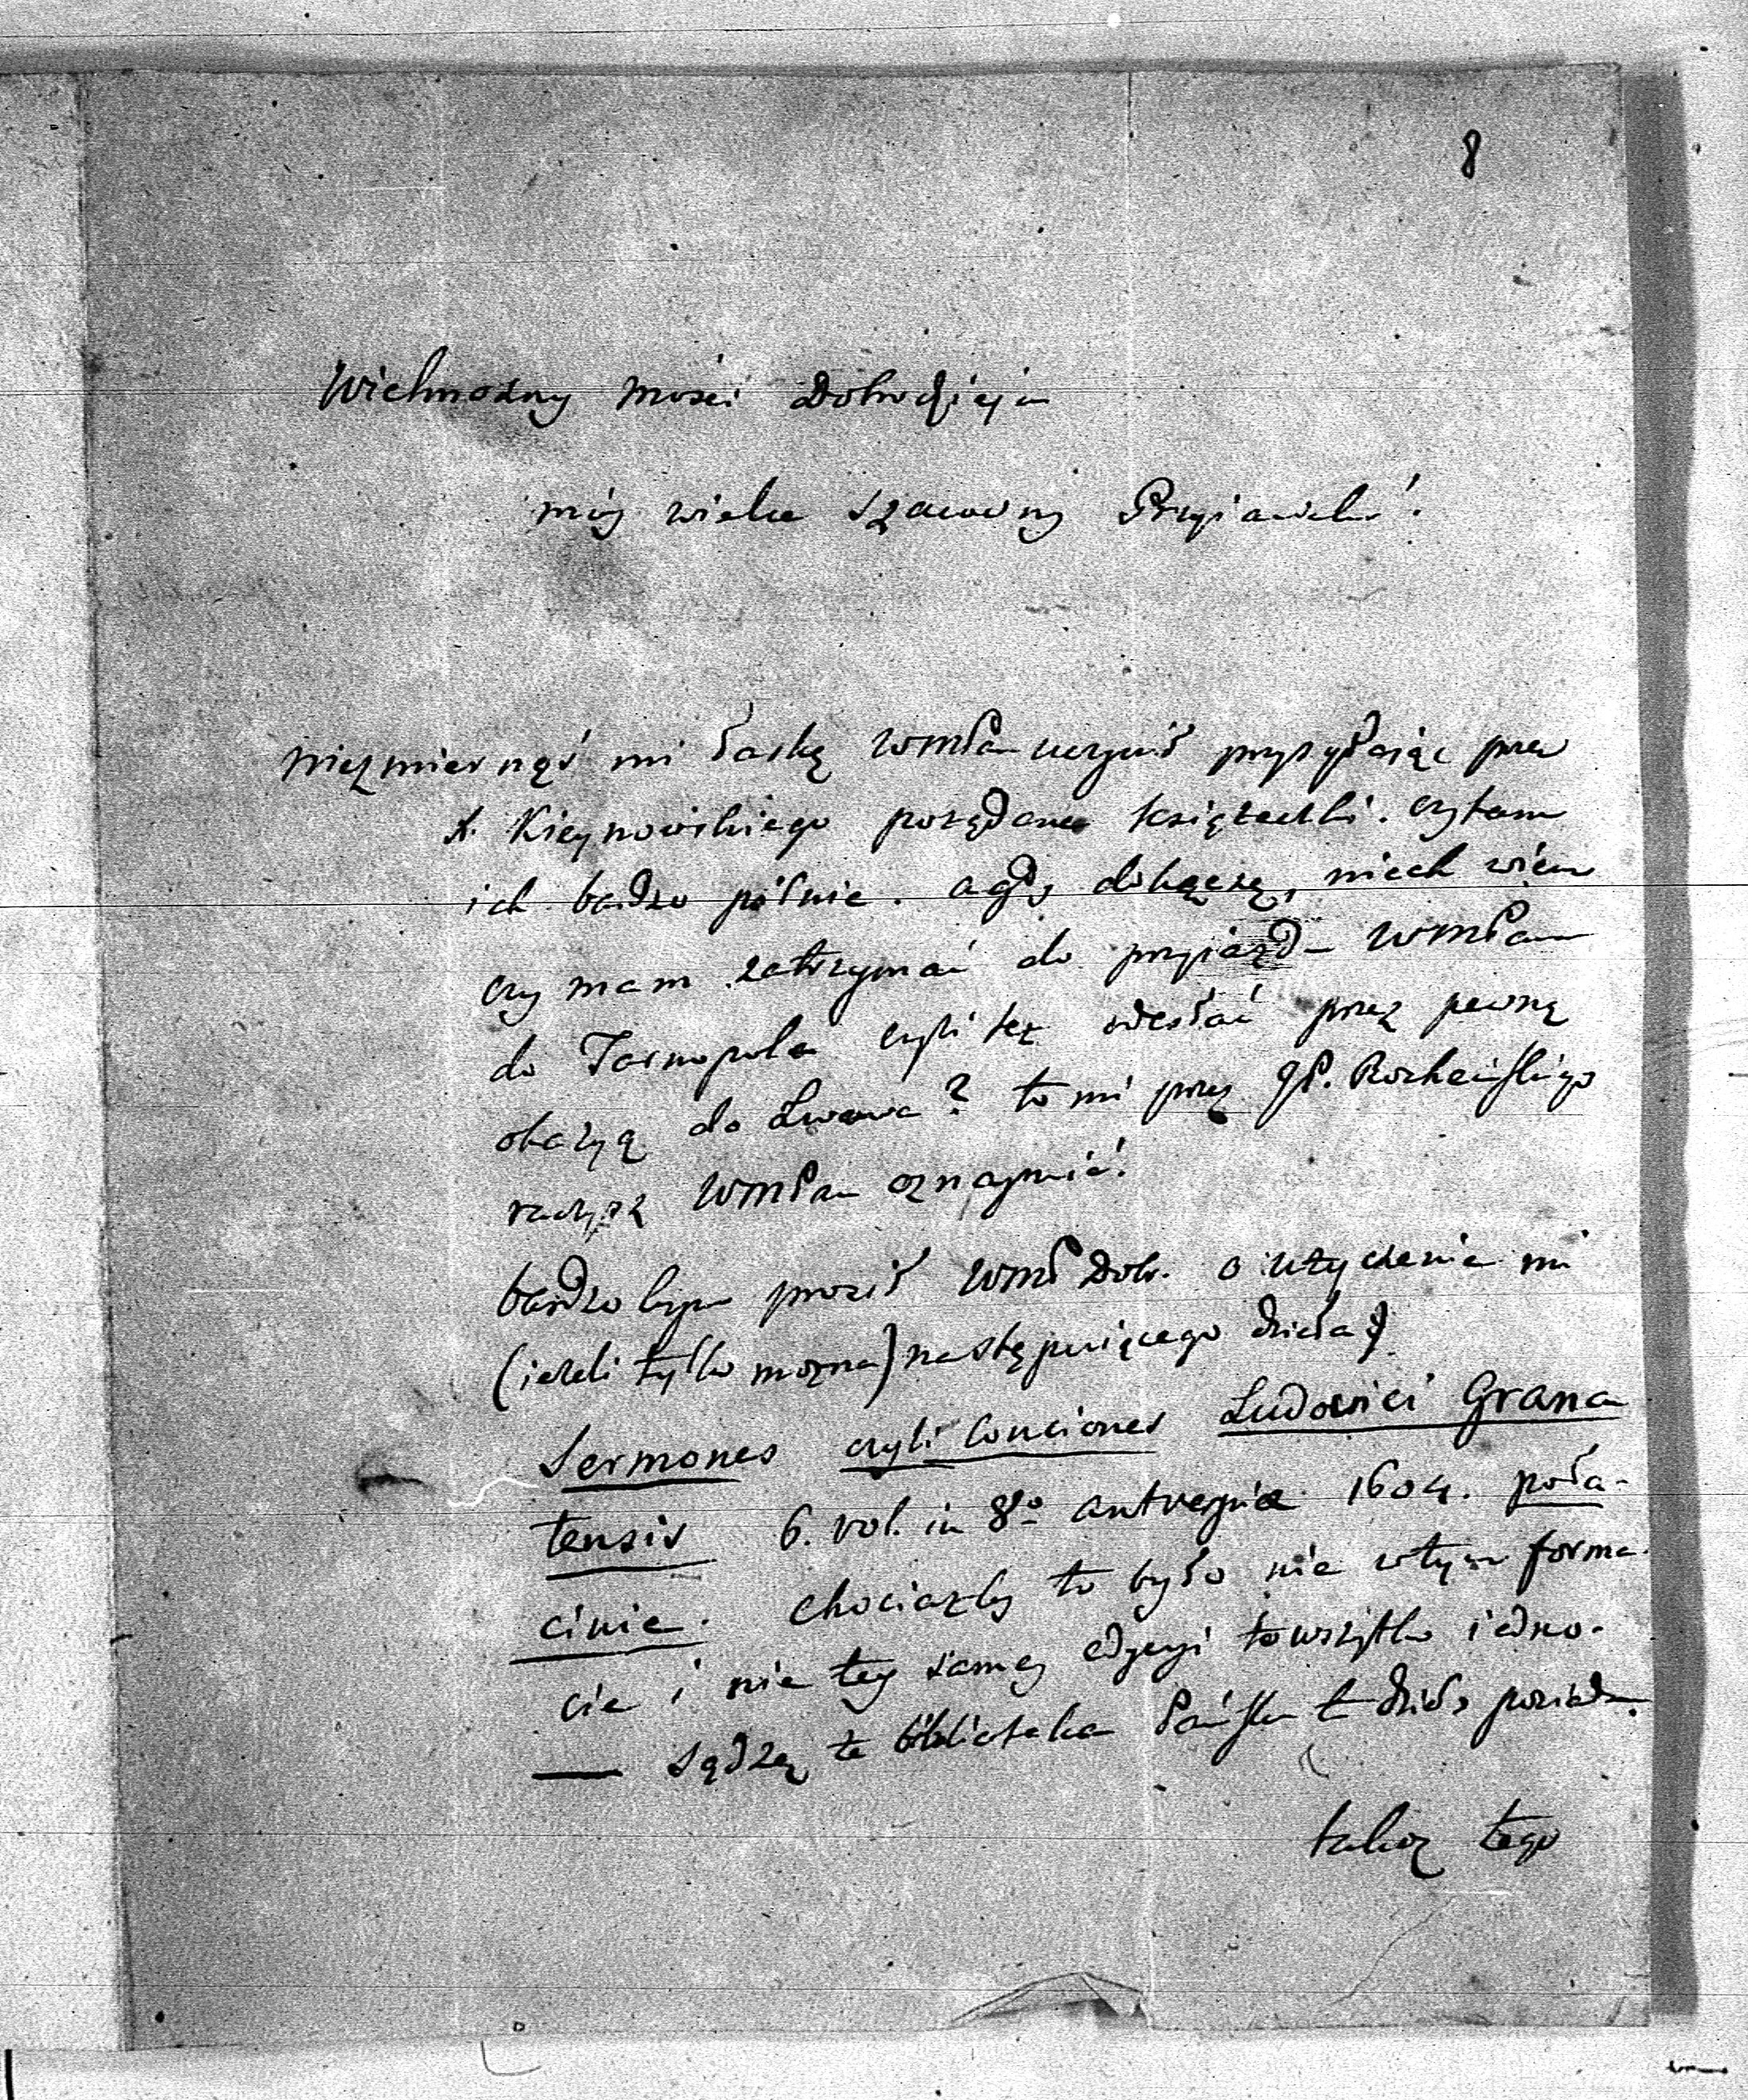 8
Wielmożny Mości Dobrodzieju
mój wielce szacowny Przyjacielu!
Niezmiernąś mi łaskę WMPan uczynił przysyłając przez
X. Kieynowskiego pożądane książeczki. czytam
ich bardzo pilnie. a gdy dokączę, niech wiem
czy mam zatrzymać do przyjazdu WMPana
do Tarnopola czyli też odesłać przez pewną
okazyą do Lwowa? to mi przez JP.
raczysz WMPan oznajmić!
bardzobym prosił WMP Dobr. o użyczenie mi
(ieżeli tylko można) następuiącego dzieła
Sermones czyli Conciones Ludovici Grana
tensis 6. vol. in 8vo antverpiae 1604. poła-
cinie. chociażby to było nie w tym forma
cie i nie tey samey edycyi to wszystko iedno.
— Sądzę że biblioteka Pańska to dzieło posiada.
tudzież tego